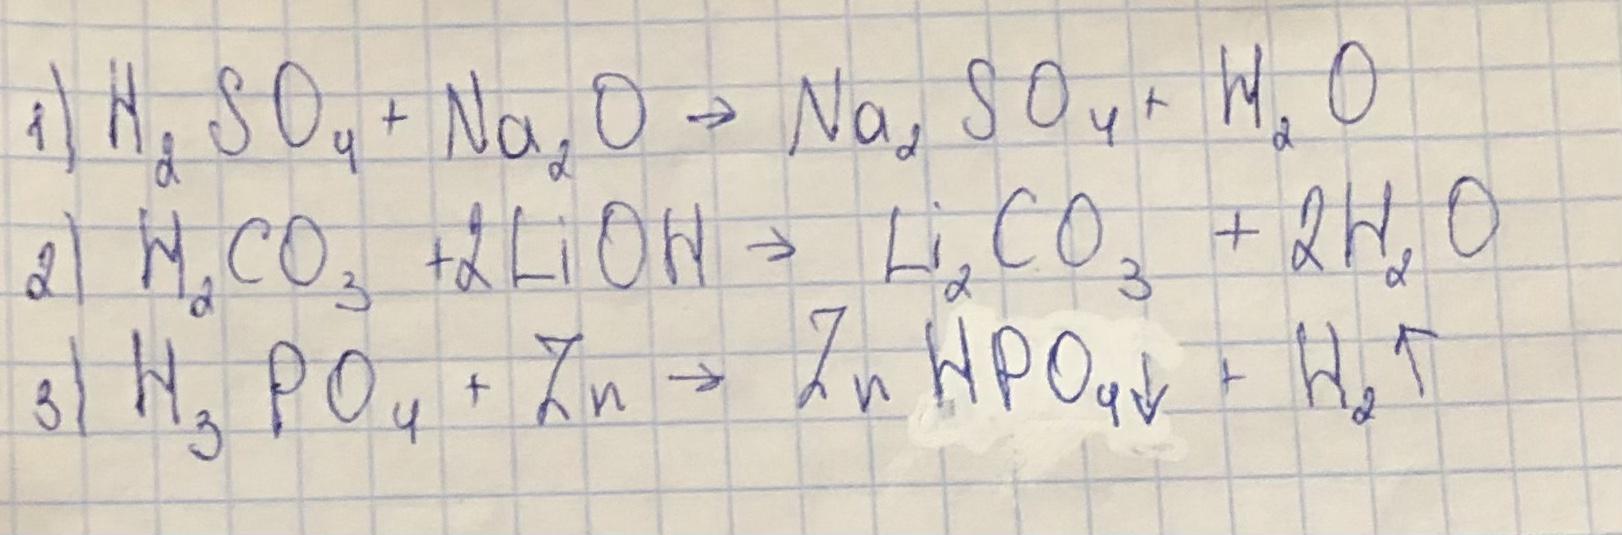 1) H₂SO₄ + Na₂O → Na₂SO₄ + H₂O
2) H₂CO₃ + 2LiOH → Li₂CO₃ + 2H₂O
3) H₃PO₄ + Zn → ZnHPO₄↓ + H₂↑